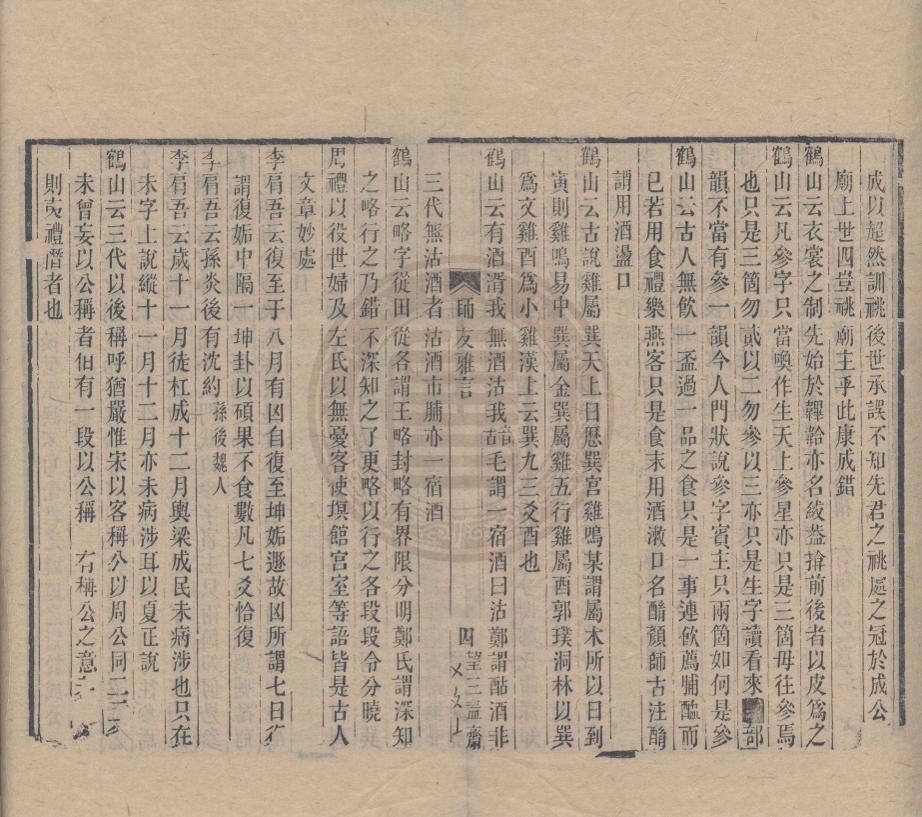 成以超然訓祧後世承誤不知先君之祧處之冠於成公
廟上世四豈祧廟主乎此康成錯
鶴山云衣裳之制先始於鞸韐亦名紱葢揜前後者以皮爲之
鶴山云凡參字只當喚作生天上參星亦只是三箇毋往參焉
也只是三箇勿貳以二勿參以三亦只是生字讀看來部
韻不當有參一韻今人門狀說參字賓主只兩箇如何是參
鶴山云古人無飲一盃過一品之食只是一事連飲薦脯醢而
已若用食禮樂燕客只是食末用酒漱口名酳顏師古注酳
謂用酒盪口
鶴山云古說雞屬巽天上日歷巽宮雞鳴某謂屬木所以日到
寅則雞鳴易中巽屬金巽屬雞五行雞屬酉郭璞洞林以巽
爲文雞酉爲小雞漢上云巽九三爻酉也
鶴山云有酒湑我無酒沽我音古毛謂一宿酒曰沽鄭謂酤酒非
師友雅言
四
望三益齋
三代無沽酒者沽酒市脯亦一宿酒
鶴山云略字從田從各謂王略封略有界限分明鄭氏謂深知
之略行之乃錯不深知之了更略以行之各段段令分曉
周禮以役世婦及左氏以無憂客使塓館宮室等語皆是古人
文章妙處
李肩吾云復至于八月有凶自復至坤姤遯故凶所謂七日復
謂復姤中隔一坤卦以碩果不食數凡七爻恰復
李肩吾云孫炎後有沈約孫後魏人
李肩吾云歲十一月徒杠成十二月輿梁成民未病涉也只在
未字上說縱十一月十二月亦未病涉耳以夏正說
鶴山云三代以後稱呼猶嚴惟宋以客稱分以周公同二
未曾妄以公稱者但有一段以公稱 有稱公之意
則夷禮僭者也